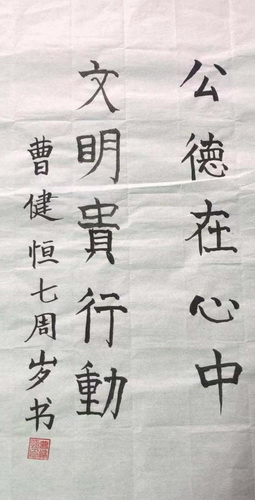 公德在心中
文明貴行動
曹健恒七周岁书